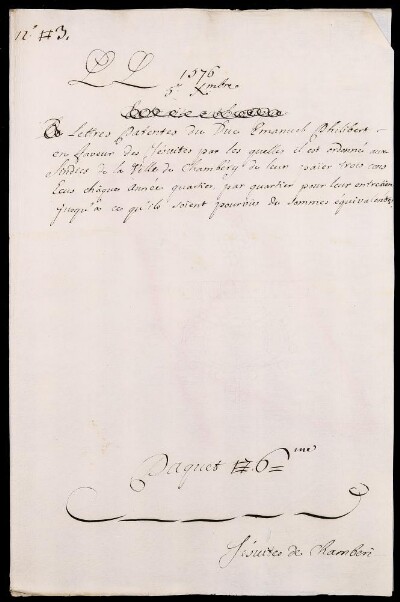 n.º 3.
1576
5.e Xmbre
Lettres Patentes du Duc Emanuel Philibert
en faveur des Jesuites par les quelles il est ordonné aux
Sindics de la Ville de Chambery de leur païer trois cens
Ecus châque Année quartier par quartier pour leur entretien
jusqu'à ce qu'ils soient pourvûs de sommes équivalentes
Paquet 6me
Jésuites de Chamberi